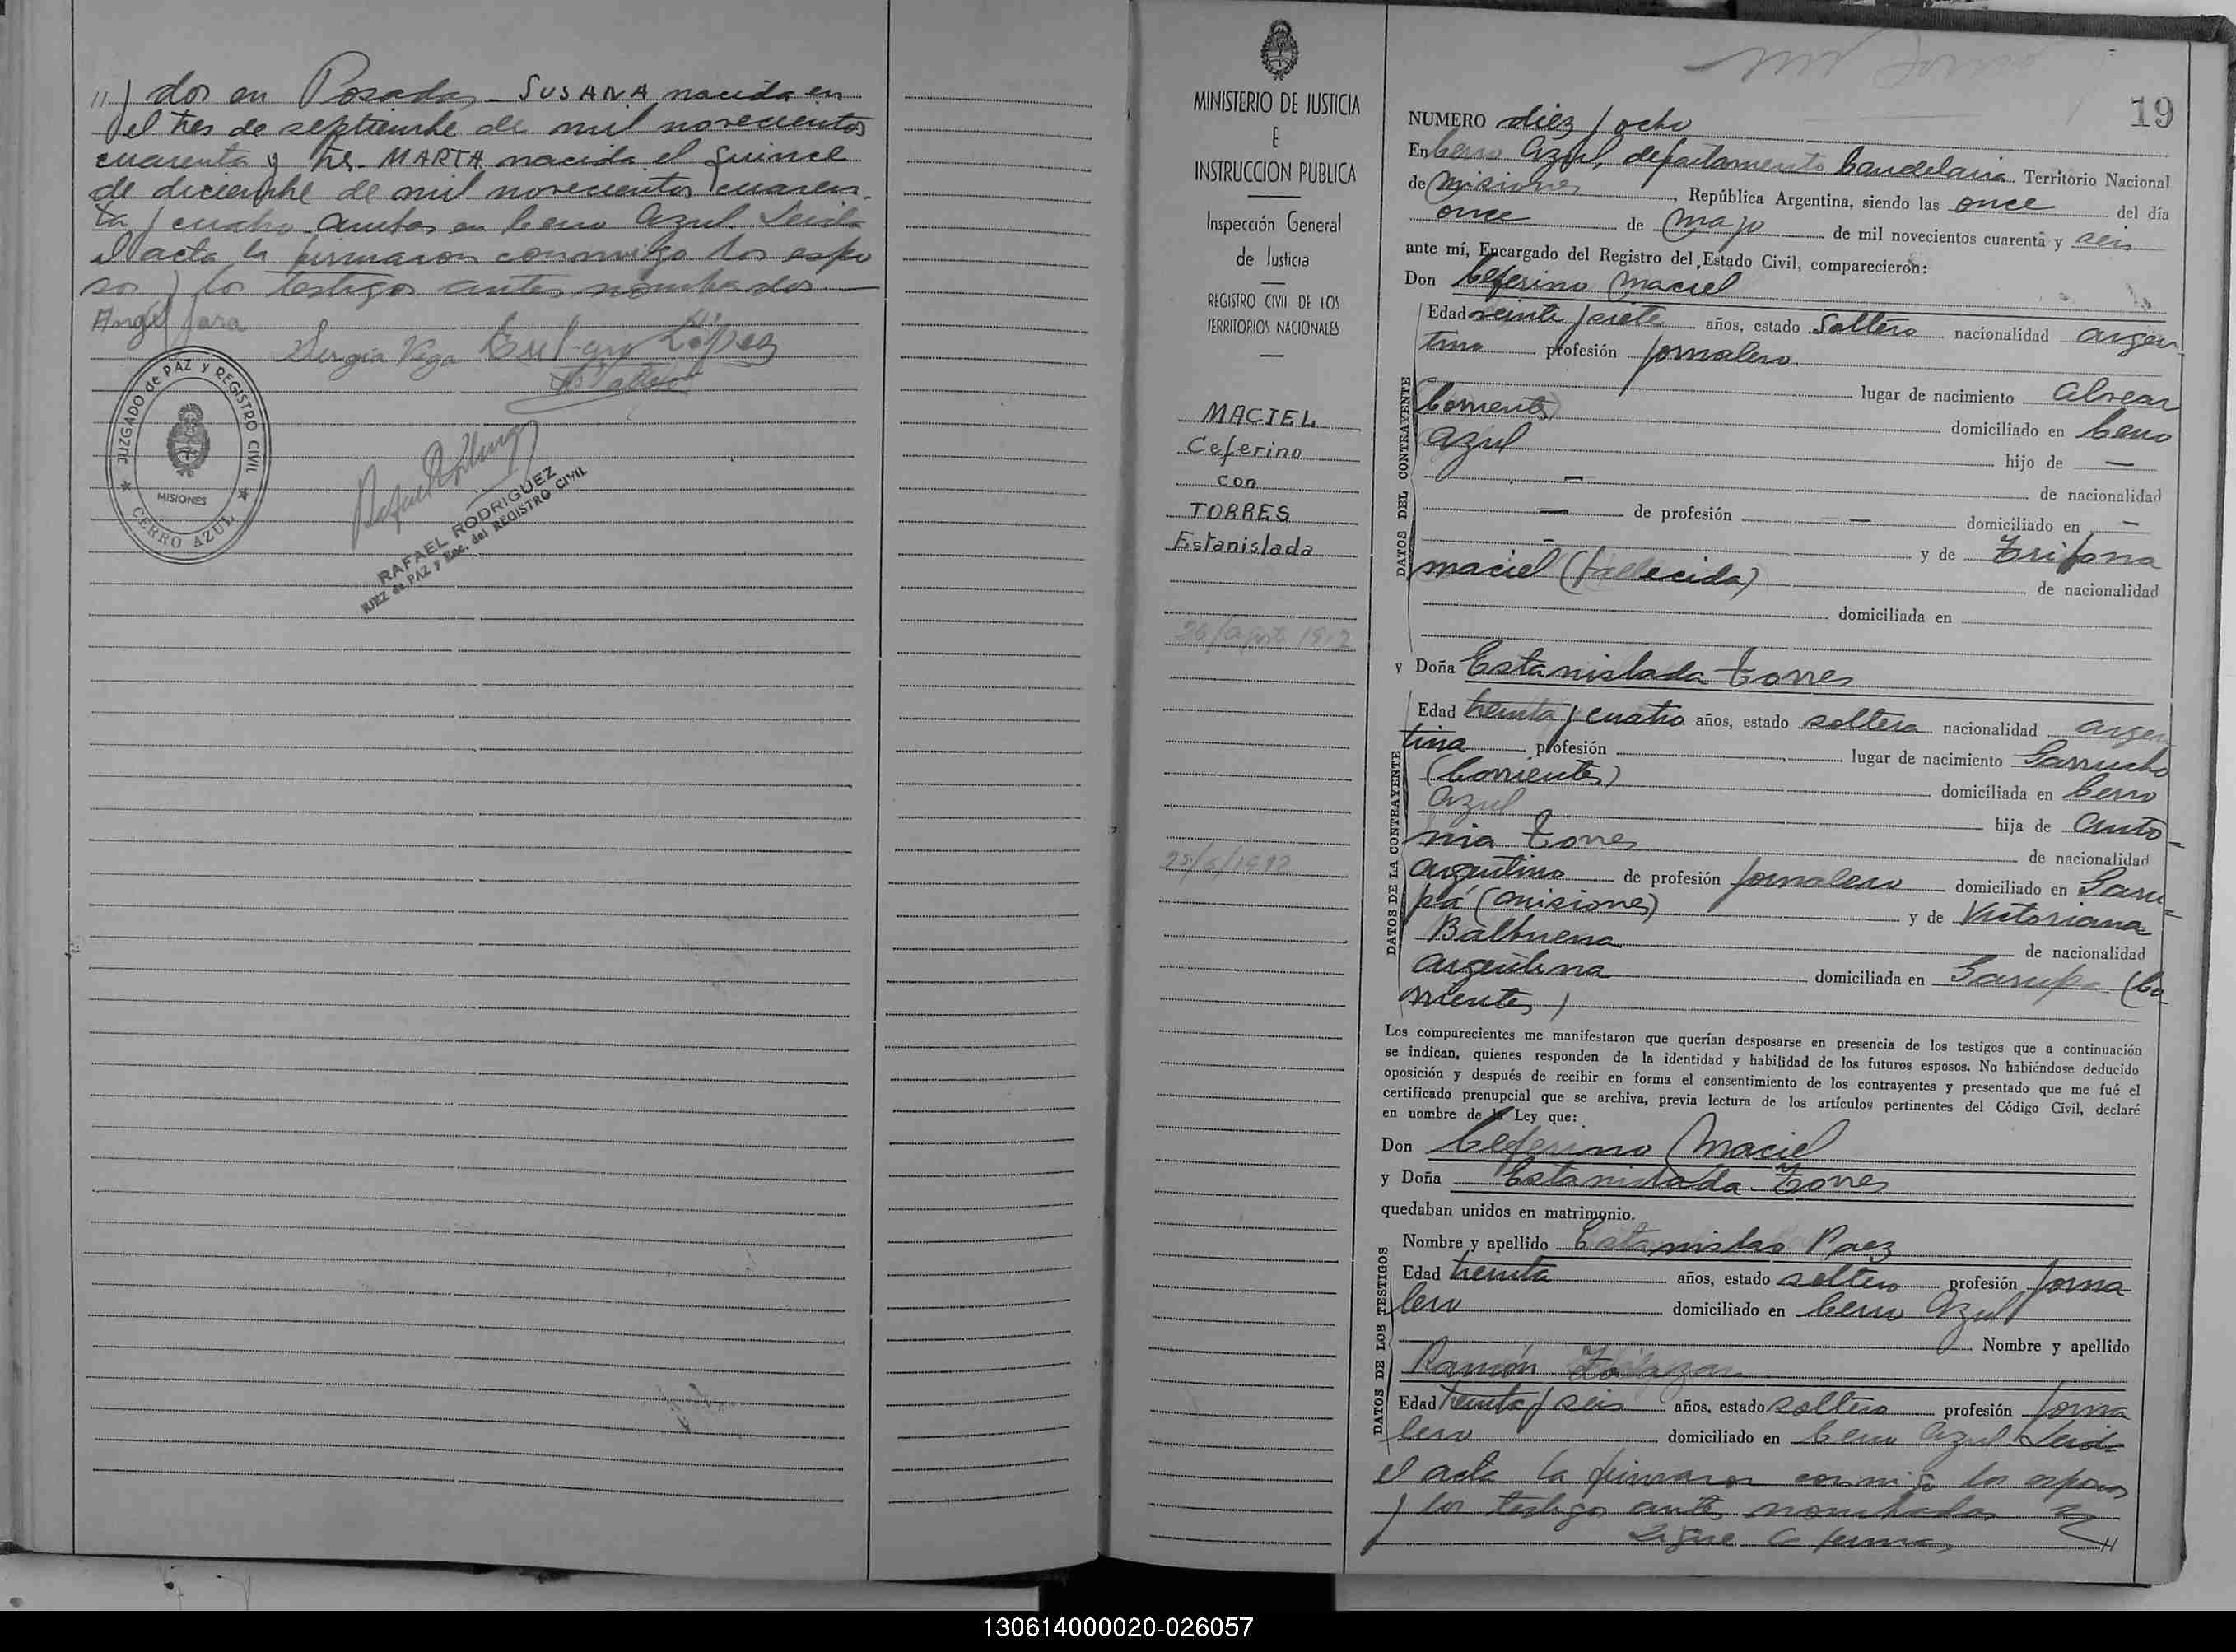 11) dos en Posadas - SUSANA nacida en
el tres de septiembre de mil novecientos
cuarenta y tres. MARTA nacida el quince
de diciembre de mil novecientos cuaren
ta y cuatro - ambas en Cerro Azul. Leida
el acta la firmaron conmigo los espo
sos y los testigos antes nombrados
Angel Jara
Sergia Vega
López
JUZGADO de PAZ Y REGISTRO CIVIL
MISIONES
CERRO AZUL
RAFAEL RODRIGUEZ
JUEZ de PAZ y Enc. del REGISTRO CIVIL
MINISTERIO DE JUSTICIA
E
INSTRUCCION PUBLICA
Inspección General
de Justicia
REGISTRO CIVIL DE LOS
TERRITORIOS NACIONALES
MACIEL
Ceferino
con
TORRES
Estanislada
19
NUMERO diez y ocho
En Cerro Azul, departamento Candelaria Territorio Nacional
de Misiones, República Argentina, siendo las once del día
once de Mayo de mil novecientos cuarenta y seis
ante mí, Encargado del Registro del Estado Civil, comparecieron:
Don Ceferino Maciel
DATOS DEL CONTRAYENTE
Edad veinte y siete años, estado Soltero nacionalidad argen
tino profesión jornalero
lugar de nacimiento Alvear
(Corrientes) domiciliado en Cerro
Azul hijo de —
— de nacionalidad
— de profesión — domiciliado en —
— y de Trifona
Maciel (fallecida) de nacionalidad
domiciliada en
y Doña Estanislada Torres
DATOS DE LA CONTRAYENTE
Edad treinta y cuatro años, estado soltera nacionalidad argen
tina profesión lugar de nacimiento Garrucho
(Corrientes) domiciliada en Cerro
Azul hija de Anto
nio Torres de nacionalidad
argentino de profesión jornalero domiciliado en Garu=
pá (Misiones) y de Victoriana
Balbuena de nacionalidad
argentina domiciliada en Garupa (Co
rrientes)
Los comparecientes me manifestaron que querían desposarse en presencia de los testigos que a continuación
se indican, quienes responden de la identidad y habilidad de los futuros esposos. No habiéndose deducido
oposición y después de recibir en forma el consentimiento de los contrayentes y presentado que me fué el
certificado prenupcial que se archiva, previa lectura de los artículos pertinentes del Código Civil, declaré
en nombre de la Ley que:
Don Ceferino Maciel
y Doña Estanislada Torres
quedaban unidos en matrimonio.
DATOS DE LOS TESTIGOS
Nombre y apellido Estanislao Paez
Edad treinta años, estado soltero profesión jorna
lero domiciliado en Cerro Azul
Nombre y apellido
Ramón
Edad treinta y seis años, estado soltero profesión jorna
lero domiciliado en Cerro Azul Leida
el acta la firmaron conmigo los esposos
y los testigos antes nombrados
Sigue la firma
130614000020-026057